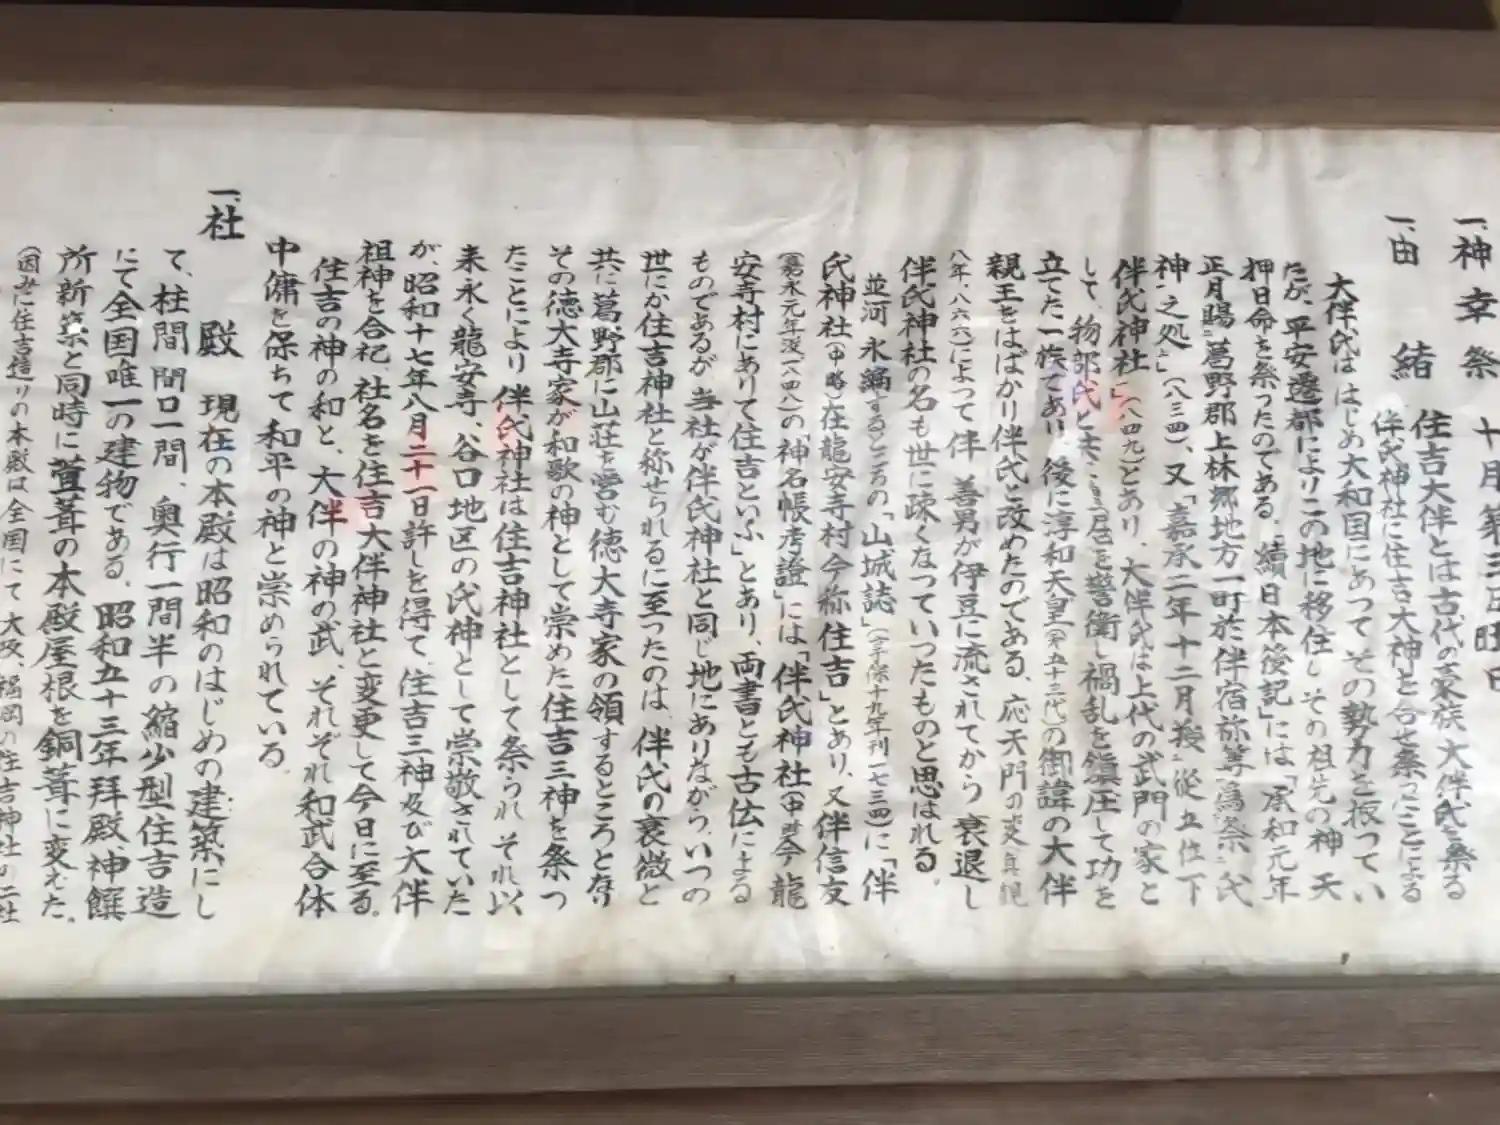 一、神幸祭 十月第三日曜日
一、由緒 住吉大伴とは古代の豪族大伴氏を祭る
伴氏神社に住吉大神を合せ祭ったことによる
大伴氏ははじめ大和国にあってその勢力を振つてい
たが、平安遷都によりこの地に移住しその祖先の神 天
押日命を祭ったのである。「續日本後記」には「承和元年
正月賜ニ葛野郡上林郷地方一町於伴宿祢等、為祭ニ氏
神一之処」(八三四)、又「嘉承二年十二月授ニ従五位下
伴氏神社」(八四九)とあり、大伴氏は上代の武門の家と
して、物部氏と共に を警衛し禍乱を鎭圧して功を
立てた一族であり、後に淳和天皇(第五十三代)の御諱の大伴
親王をはばかり伴氏と改めたのである、応天門の変(貞観
八年、八六六)によって伴 善男が伊豆に流されてから衰退し
伴氏神社の名も世に疎くなつていったものと思はれる。
並河 永編するところの「山城誌」(享保十九年刊一七三四)に「伴
氏神社(中略)在龍安寺村今称住吉」とあり、又伴信友
(嘉永元年没一八四八)の「神名帳考證」には「伴氏神社(中略)今龍
安寺村にありて住吉といふ」とあり、両書とも古伝による
ものであるが、当社が伴氏神社と同じ地にありながら、いつの
世にか住吉神社と称せられるに至ったのは、伴氏の衰微と
共に葛野郡に山荘を営む徳大寺家の領するところとなり
その徳大寺家が和歌の神として崇めた住吉三神を祭つ
たことにより 伴氏神社は住吉神社として祭られ それ以
来永く龍安寺、谷口地区の氏神として崇敬されていた
が、昭和十七年八月二十一日許しを得て、住吉三神及び大伴
祖神を合祀、社名を住吉大伴神社と変更して今日に至る。
住吉の神の和と、大伴の神の武、それぞれ和武合体
中庸を保ちて和平の神と崇められている。
一、社殿 現在の本殿は昭和のはじめの建築にし
て、柱間間口一間、奥行一間半の縮少型住吉造
にて全国唯一の建物である、昭和五十三年拝殿、神饌
所新築と同時に萱葺の本殿屋根を銅葺に変えた。
(因みに住吉造りの本殿は全国にて 大阪、福岡の住吉神社の二社